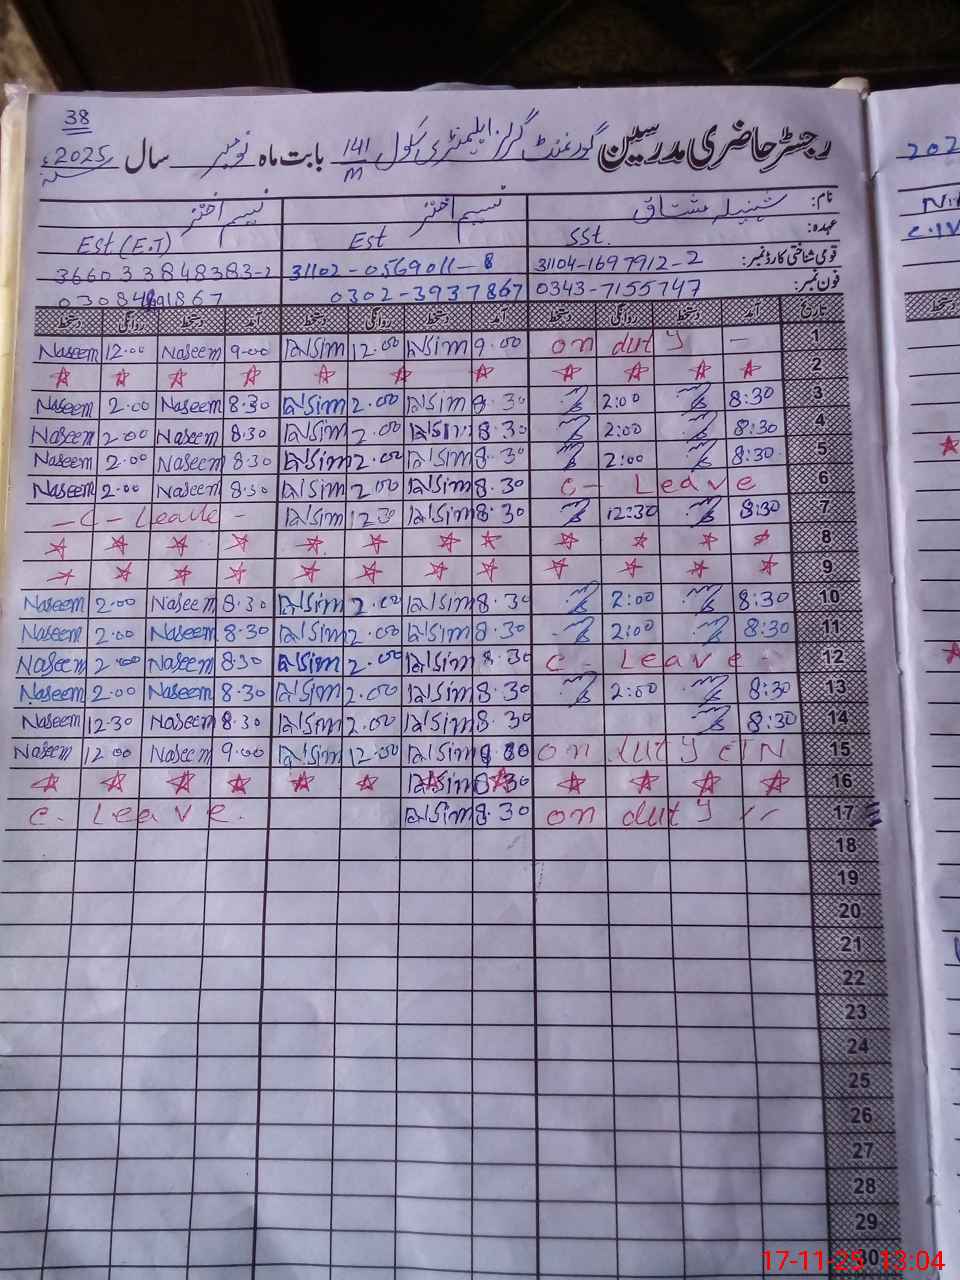 38
رجسٹر حاضری مدرسین گورنمنٹ گرلز ایلیمنٹری سکول 141/M بابت ماہ نومبر سال 2025ء
نام: شنیلہ مشتاق نسیم اختر نسیم اختر
عہدہ: SSt. Est Est (E.I)
قومی شناختی کارڈ نمبر: 31104-1697912-2 31102-0569011-8 366033848383-2
فون نمبر: 0343-7155747 0302-3937867
تاریخ آمد دستخط روانگی دستخط آمد دستخط روانگی دستخط آمد دستخط روانگی دستخط
Naseem 12.00 Naseem 9-00 12.00 9.00 on duty - 1
2
Naseem 2.00 Naseem 8.30 2.00 8.30 2:00 8:30 3
Naseem 2.00 Naseem 8.30 2.00 8.30 2:00 8:30 4
Naseem 2.00 Naseem 8.30 2.00 8.30 2:00 8:30 5
Naseem 2.00 Naseem 8.30 2.00 8.30 C- Leave 6
- C - Leave - 12 30 8.30 12:30 8:30 7
8
9
Naseem 2.00 Naseem 8.30 2.00 8.30 2:00 8:30 10
Naseem 2.00 Naseem 8.30 2.00 8.30 2:00 8:30 11
Naseem 2.00 Naseem 8.30 2.00 8.30 C- Leave - 12
Naseem 2.00 Naseem 8.30 2.00 8.30 2:00 8:30 13
Naseem 12.30 Naseem 8.30 2.00 8.30 8:30 14
Naseem 12.00 Naseem 9.00 12.00 on duty 15
16
C. Leave. 8.30 on duty 17
18
19
20
21
22
23
24
25
26
27
28
29
30
17-11-25 13:04